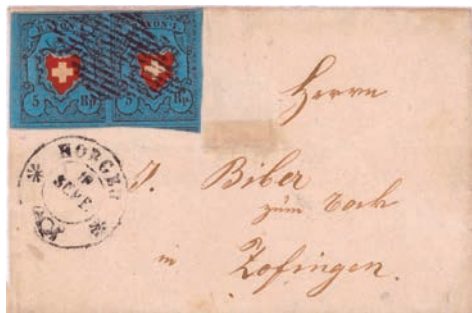 5 Rp. 5 Rp.
HORGEN
18
SEPT.
Herrn
J. Biber
zum
in Zofingen.